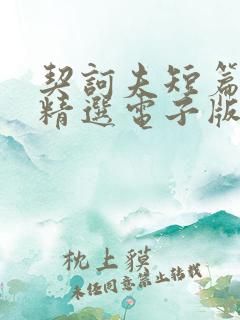 契訶夫短篇
精選電子版
枕上貘
未经同意禁止转载